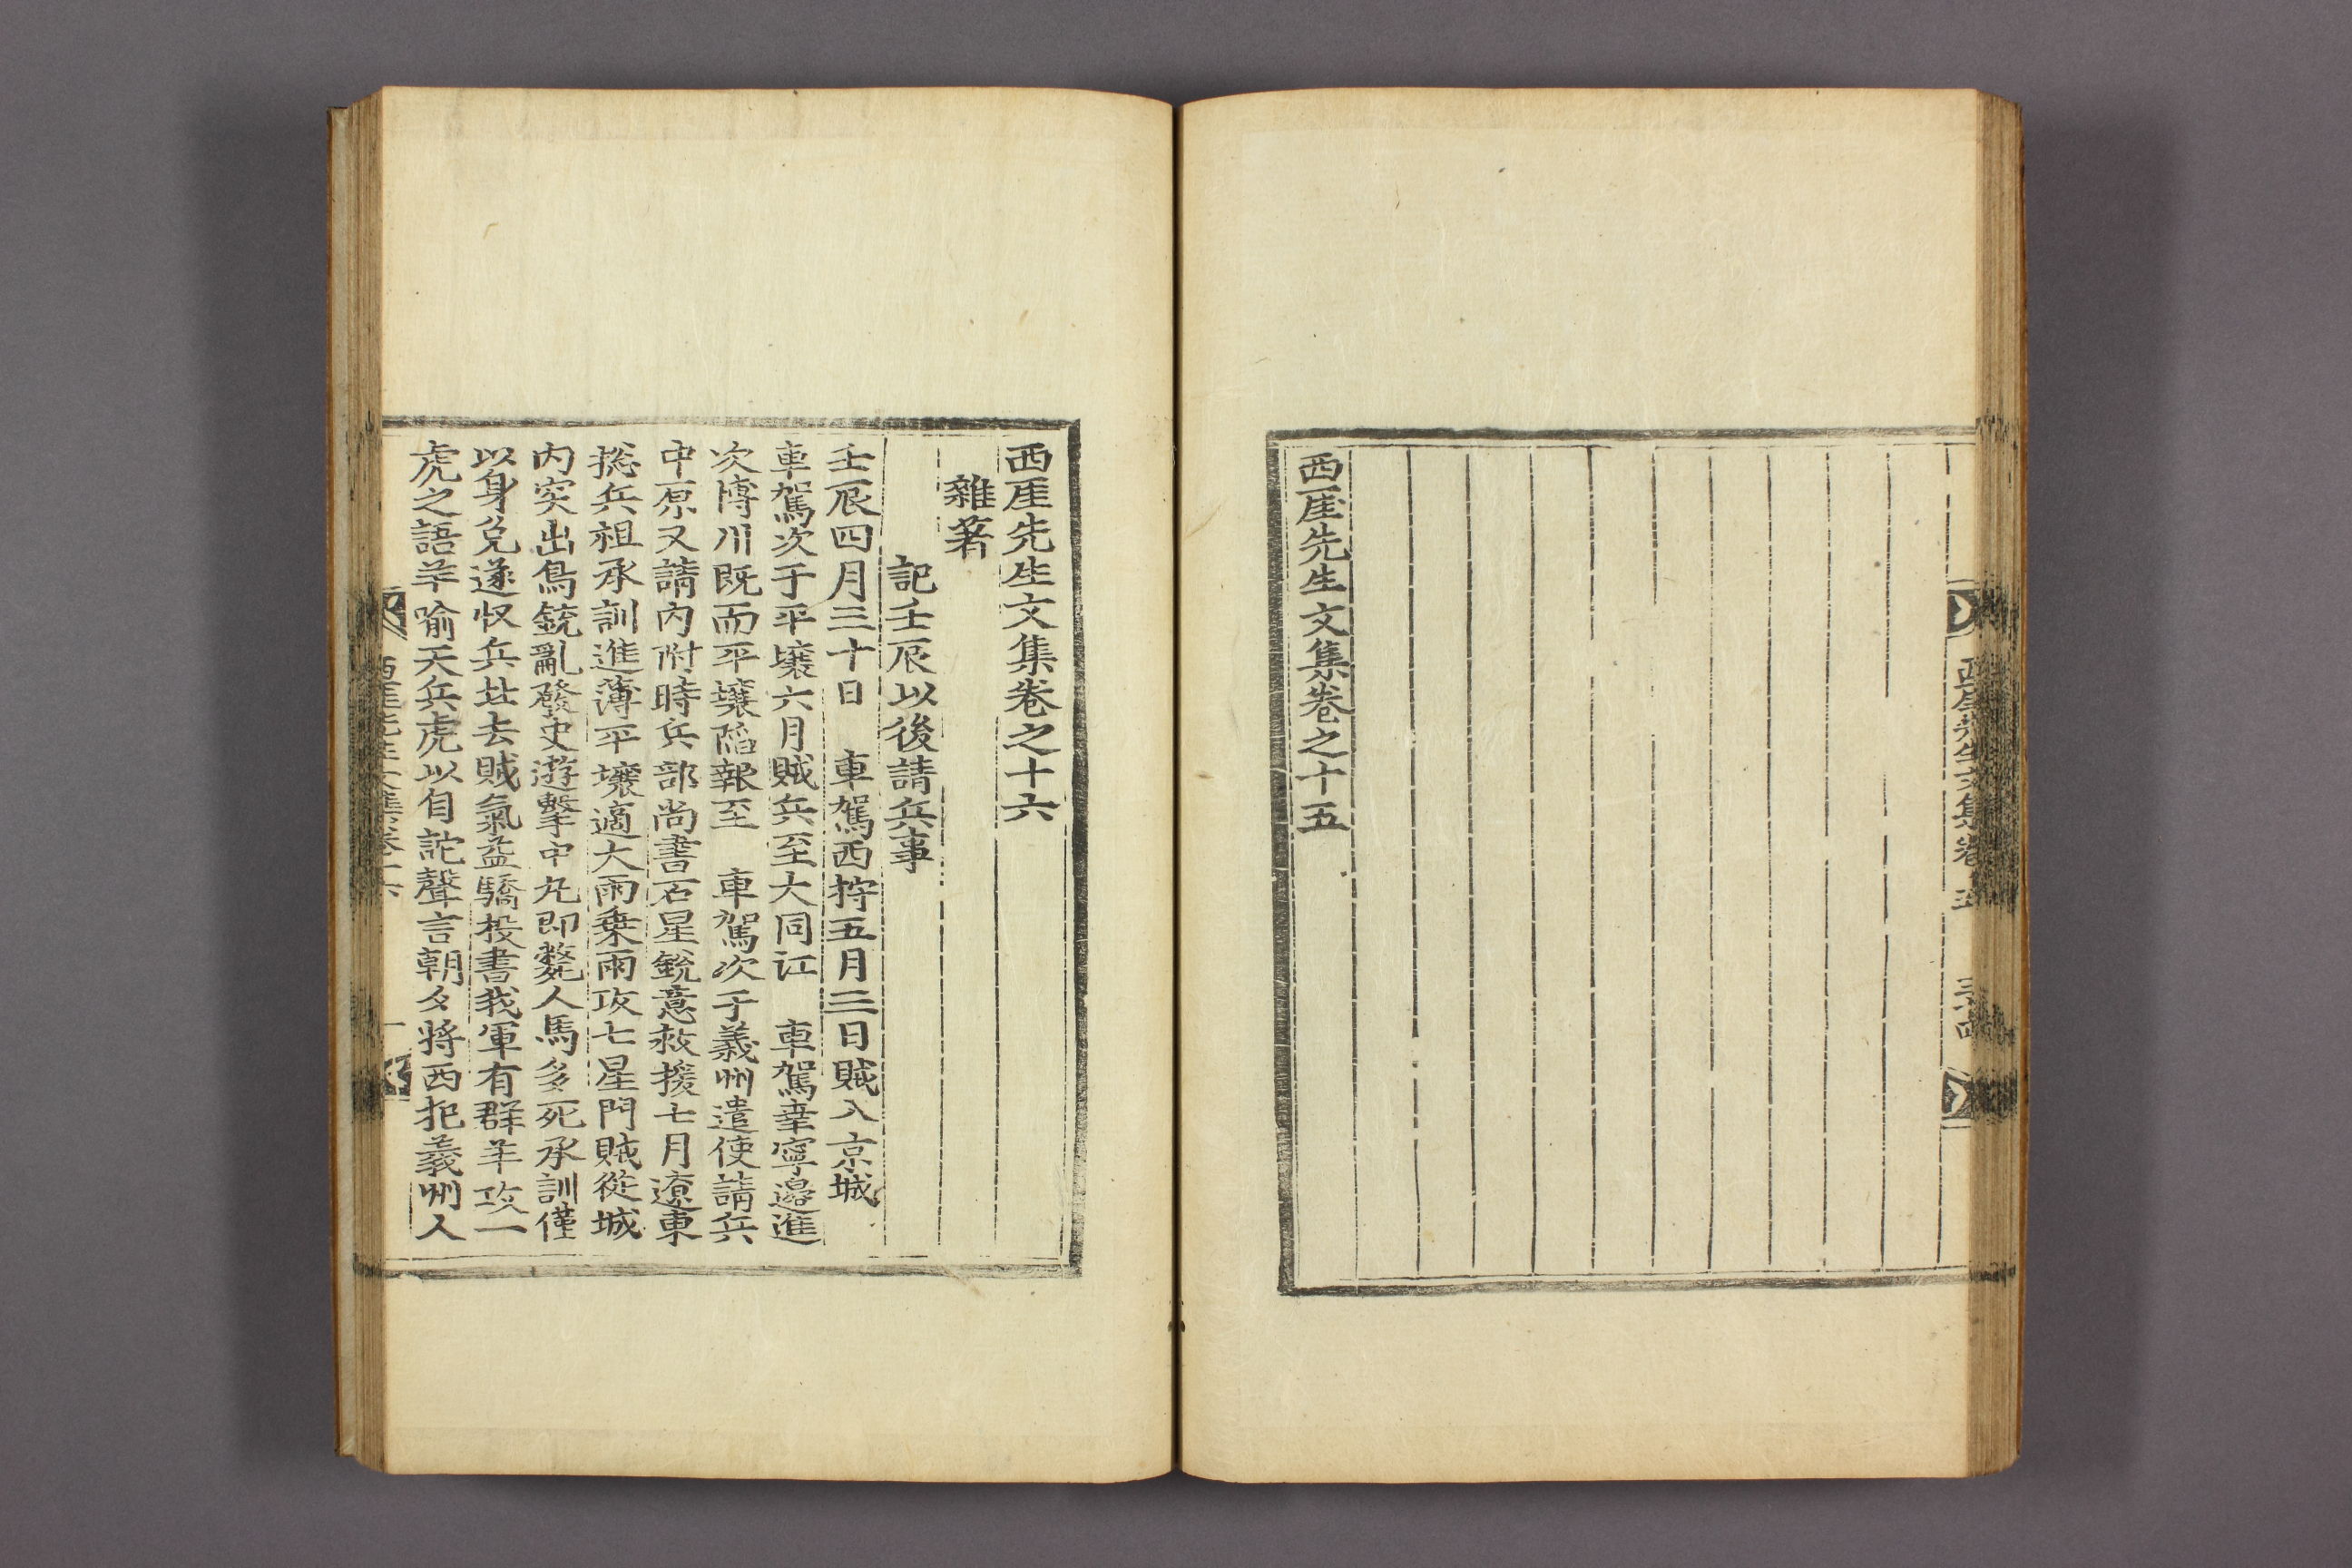 西厓先生文集卷之十五
西厓先生文集卷之十六
雜著
記壬辰以後請兵事
壬辰四月三十日　車駕西狩五月三日賊入京城
車駕次于平壤六月賊兵至大同江　車駕幸寧邊進
次博川旣而平壤陷報至　車駕次于義州遣使請兵
中原又請內附時兵部尙書石星銳意救援七月遼東
捴兵祖承訓進薄平壤適大雨乗雨攻七星門賊從城
內突出鳥銃亂發史遊擊中丸即斃人馬多死承訓僅
以身免遂收兵北去賊氣益驕投書我軍有群羊攻一
虎之語羊喩天兵虎以自詑聲言朝夕將西犯義州人